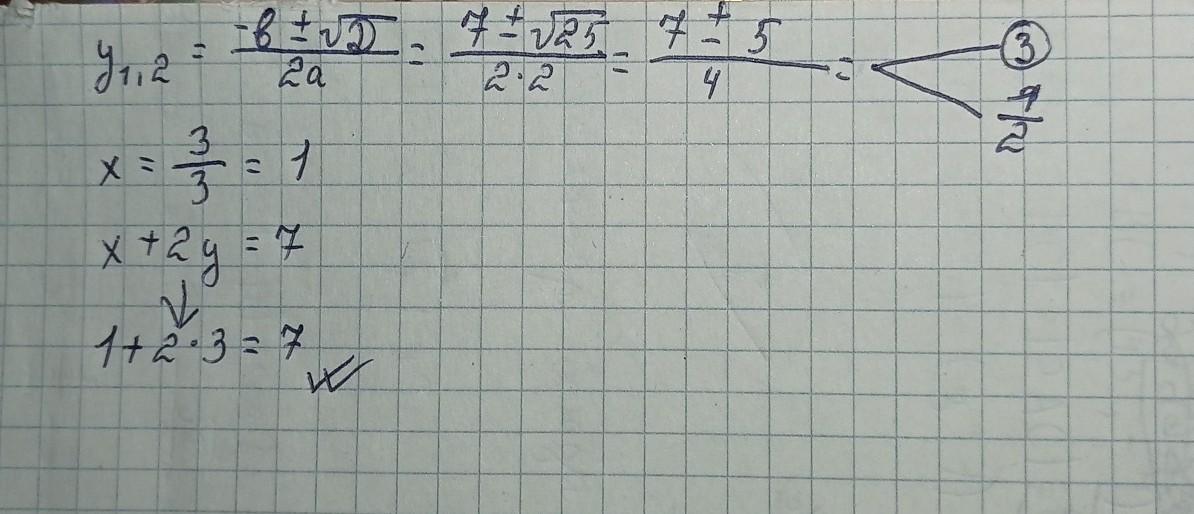 y₁,₂ = (-b ± √D)/(2a) = (7 ± √25)/(2·2) = (7 ± 5)/4 = < 3
1/2
x = 3/3 = 1
x + 2y = 7
↓
1 + 2·3 = 7 ✓